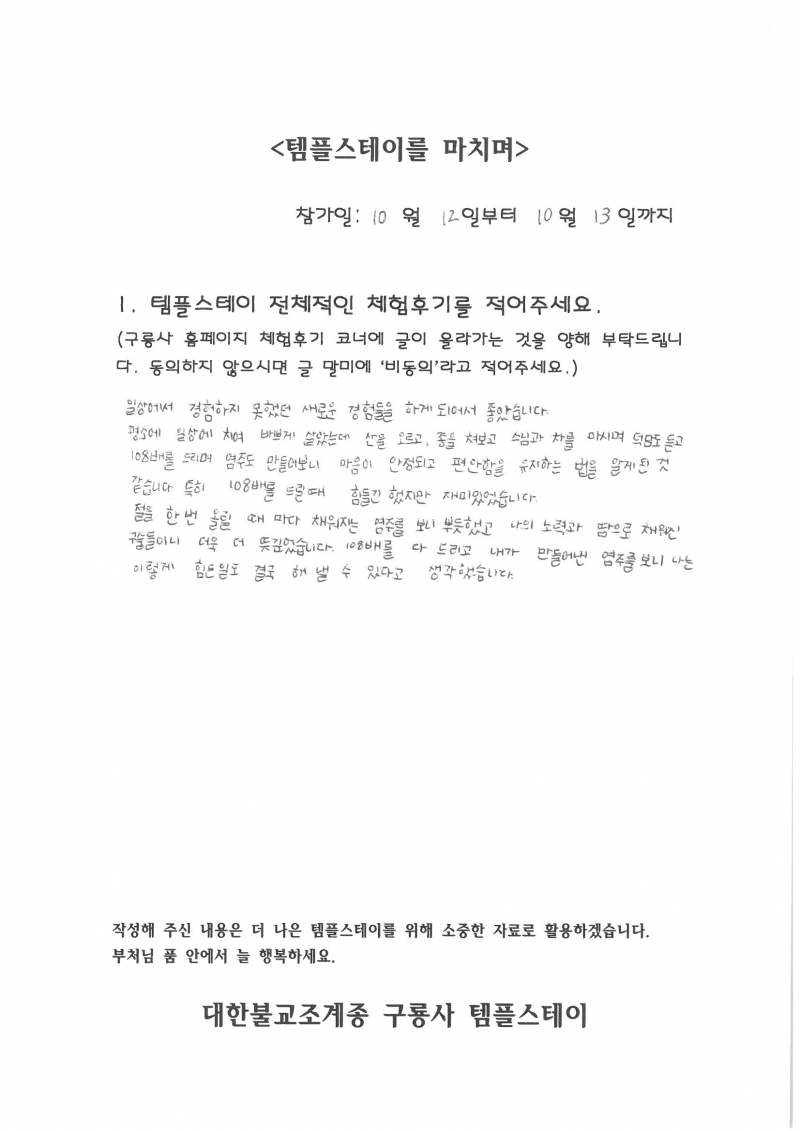 <템플스테이를 마치며>
참가일: 10 월 12일부터 10월 13일까지
1. 템플스테이 전체적인 체험후기를 적어주세요.
(구룡사 홈페이지 체험후기 코너에 글이 올라가는 것을 양해 부탁드립니
다. 동의하지 않으시면 글 말미에 '비동의'라고 적어주세요.)
일상에서 경험하지 못했던 새로운 경험들을 하게 되어서 좋았습니다.
평소에 일상에 치여 바쁘게 살았는데 산을 오르고, 종을 쳐보고 스님과 차를 마시며 덕담도 듣고
108배를 드리며 염주도 만들어보니 마음이 안정되고 편안함을 유지하는 법을 알게 된 것
같습니다 특히 108배를 드릴때 힘들긴 했지만 재미있었습니다.
절을 한 번 올릴 때 마다 채워지는 염주를 보니 뿌듯했고 나의 노력과 땀으로 채워진
구슬들이니 더욱 더 뜻깊었습니다. 108배를 다 드리고 내가 만들어낸 염주를 보니 나는
이렇게 힘든일도 결국 해 낼 수 있다고 생각했습니다.
작성해 주신 내용은 더 나은 템플스테이를 위해 소중한 자료로 활용하겠습니다.
부처님 품 안에서 늘 행복하세요.
대한불교조계종 구룡사 템플스테이